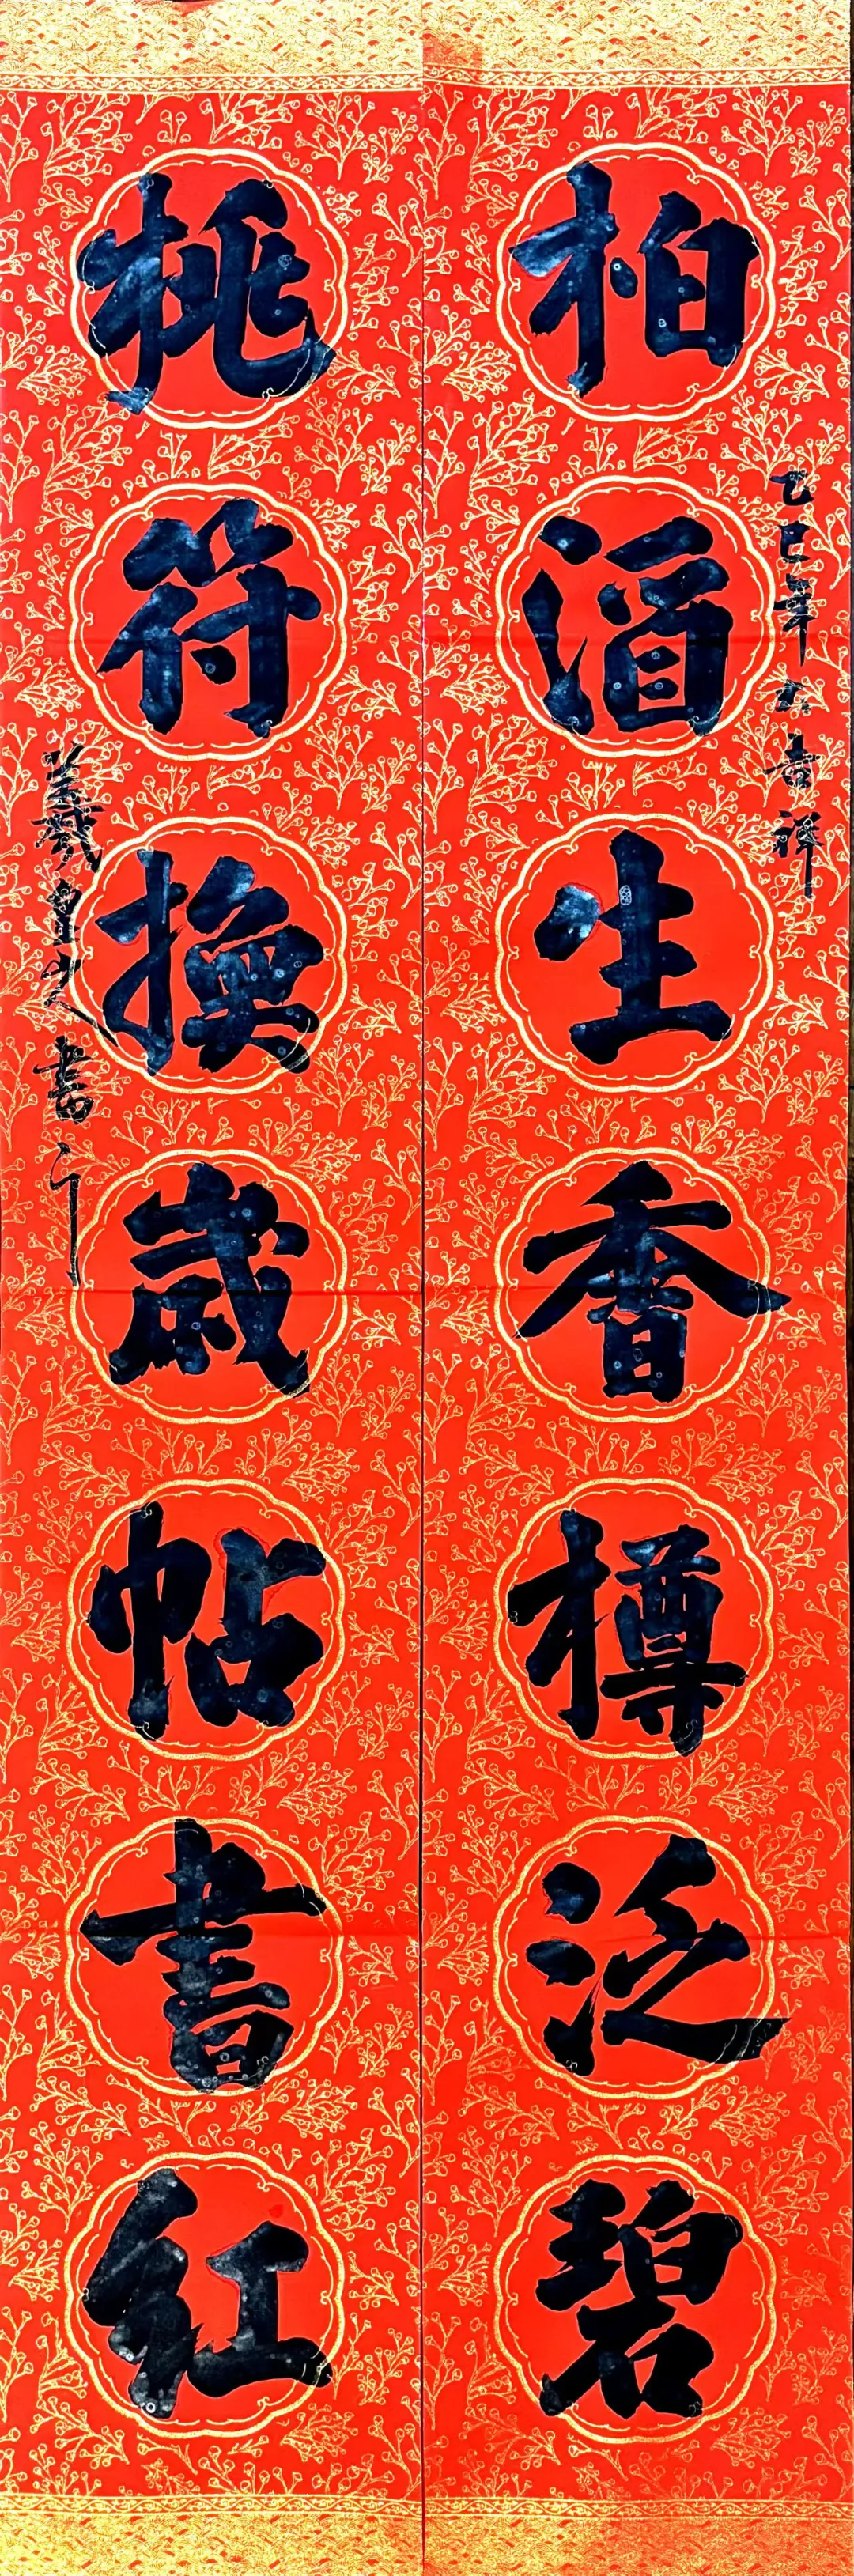 乙巳年大吉祥
柏酒生香樽泛碧
桃符換歲帖書紅
書